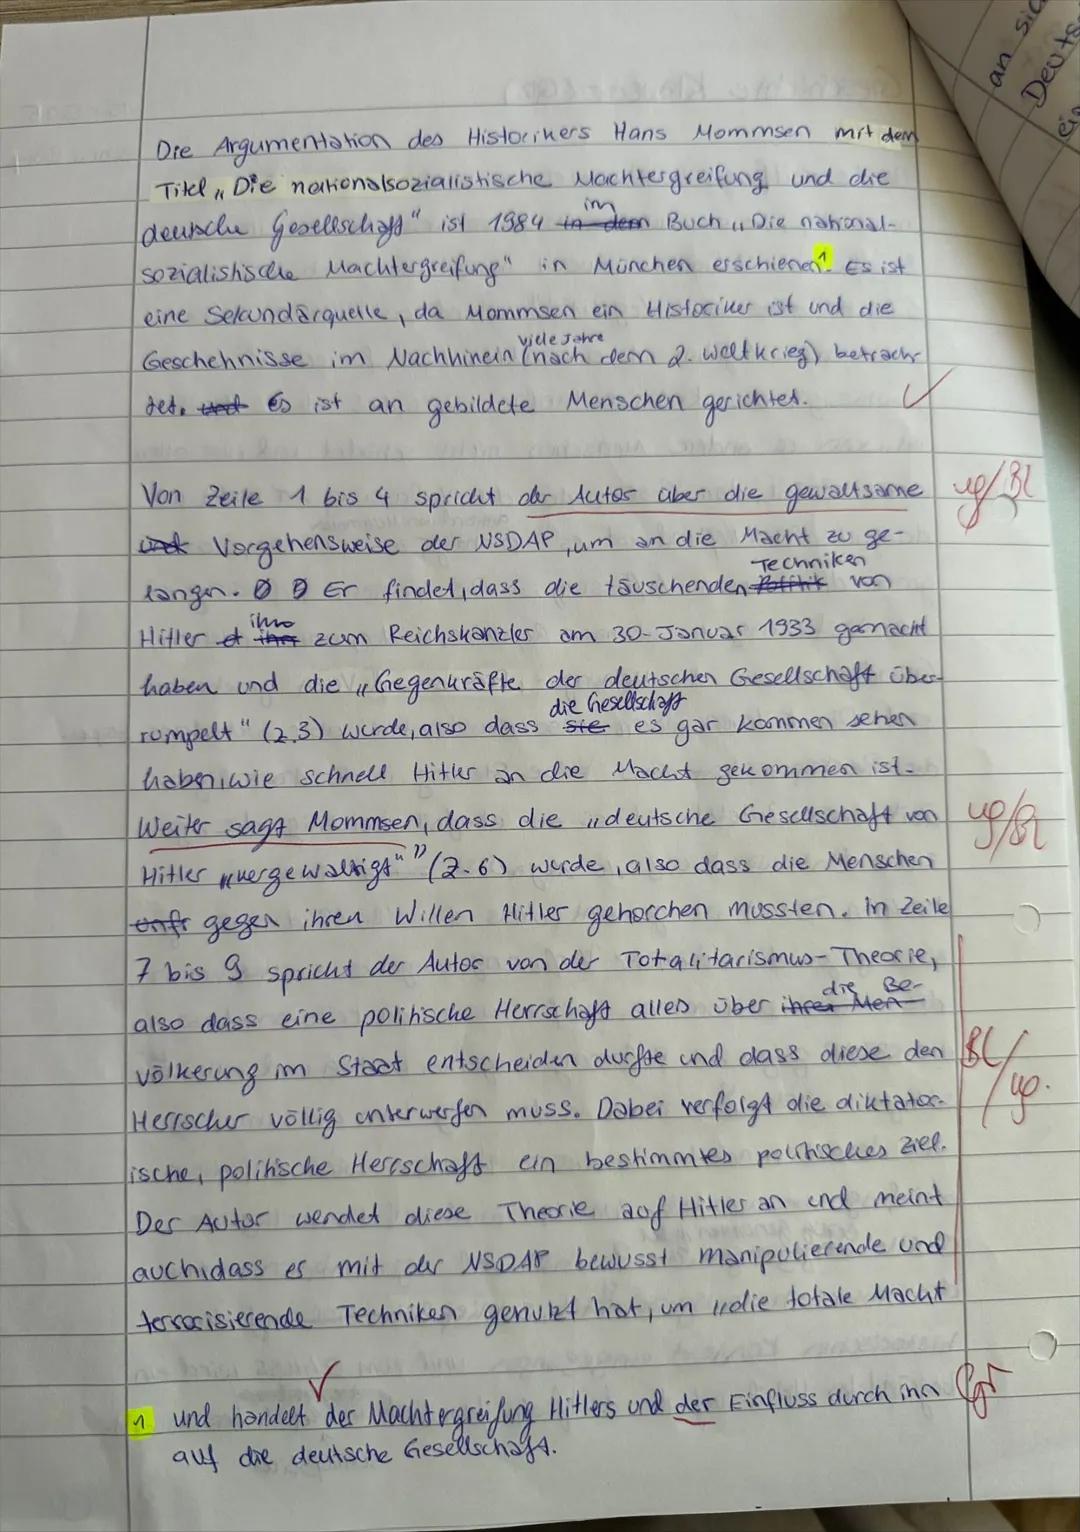 an sic
Deuts
ein
Die Argumentation des Historikers Hans Mommsen mit dem
Titel „Die nationalsozialistische Machtergreifung und die
deutsche Gesellschaft" ist 1984 in dem im Buch „Die national-
sozialistische Machtergreifung" in München erschienen¹. Es ist
eine Sekundärquelle, da Mommsen ein Historiker ist und die
Geschehnisse im Nachhinein (viele Jahre nach dem 2. Weltkrieg) betrach-
tet. und Es ist an gebildete Menschen gerichtet. ✓
Von Zeile 1 bis 4 spricht der Autor über die gewaltsame ug/Bl
und Vorgehensweise der NSDAP, um an die Macht zu ge-
langen. Er findet, dass die täuschenden Politik Techniken von
Hitler ihn zum Reichskanzler am 30. Januar 1933 gemacht
haben und die „Gegenkräfte der deutschen Gesellschaft über-
rumpelt" (Z.3) wurde, also dass sie die Gesellschaft es gar kommen sehen
haben, wie schnell Hitler an die Macht gekommen ist.
Weiter sagt Mommsen, dass die „deutsche Gesellschaft von ug/Bl
Hitler „vergewaltigt“" (Z.6) wurde, also dass die Menschen
gegen ihren Willen Hitler gehorchen mussten. In Zeile
7 bis 9 spricht der Autor von der Totalitarismus-Theorie,
also dass eine politische Herrschaft alles über ihrer Men- die Be-
völkerung im Staat entscheiden durfte und dass diese den Bl/ug.
Herrscher völlig unterwerfen muss. Dabei verfolgt die diktator-
ische, politische Herrschaft ein bestimmtes politisches Ziel.
Der Autor wendet diese Theorie auf Hitler an und meint
auch, dass er mit der NSDAP bewusst manipulierende und
terrorisierende Techniken genutzt hat, um „die totale Macht
✓
1 und handelt der Machtergreifung Hitlers und der Einfluss durch ihn Gr
auf die deutsche Gesellschaft.